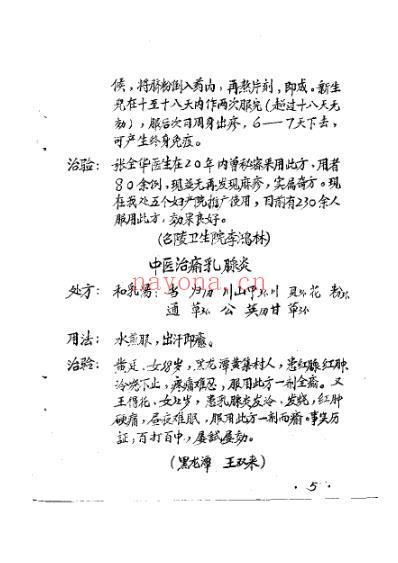 候，将脐粉倒入药内，再熬片刻，即成。新生
儿在十至十八天内作两次服完（超过十八天无
效），服后次日周身出疹，6——7天下去，
可产生终身免疫。
治验：张全华医生在20年内曾秘密采用此方，用者
80余例，现并无再发现麻疹，实属奇方。现
在我处五个妇产院推广使用，目前有230余人
服用此方，效果良好。
（召陵卫生院李鸿林）
中医治痛乳腺炎
处方：和乳汤：当 归 川山甲 贝 花 粉
通 草 公 英 甘 草
用法：水煎服，出汗即瘾。
治验：黄 女18岁，黑龙潭黄集村人，患红腺红肿
冷 不止，疼痛难忍，服用此方一剂全癒。又
王得花、女22岁，患乳腺炎发冷、发烧，红肿
硬痛，昼夜难眠，服用此方一剂而癒。事实历
证，百打百中，屡试屡效。
（黑龙潭 王双来）
·5·
nayona.cn